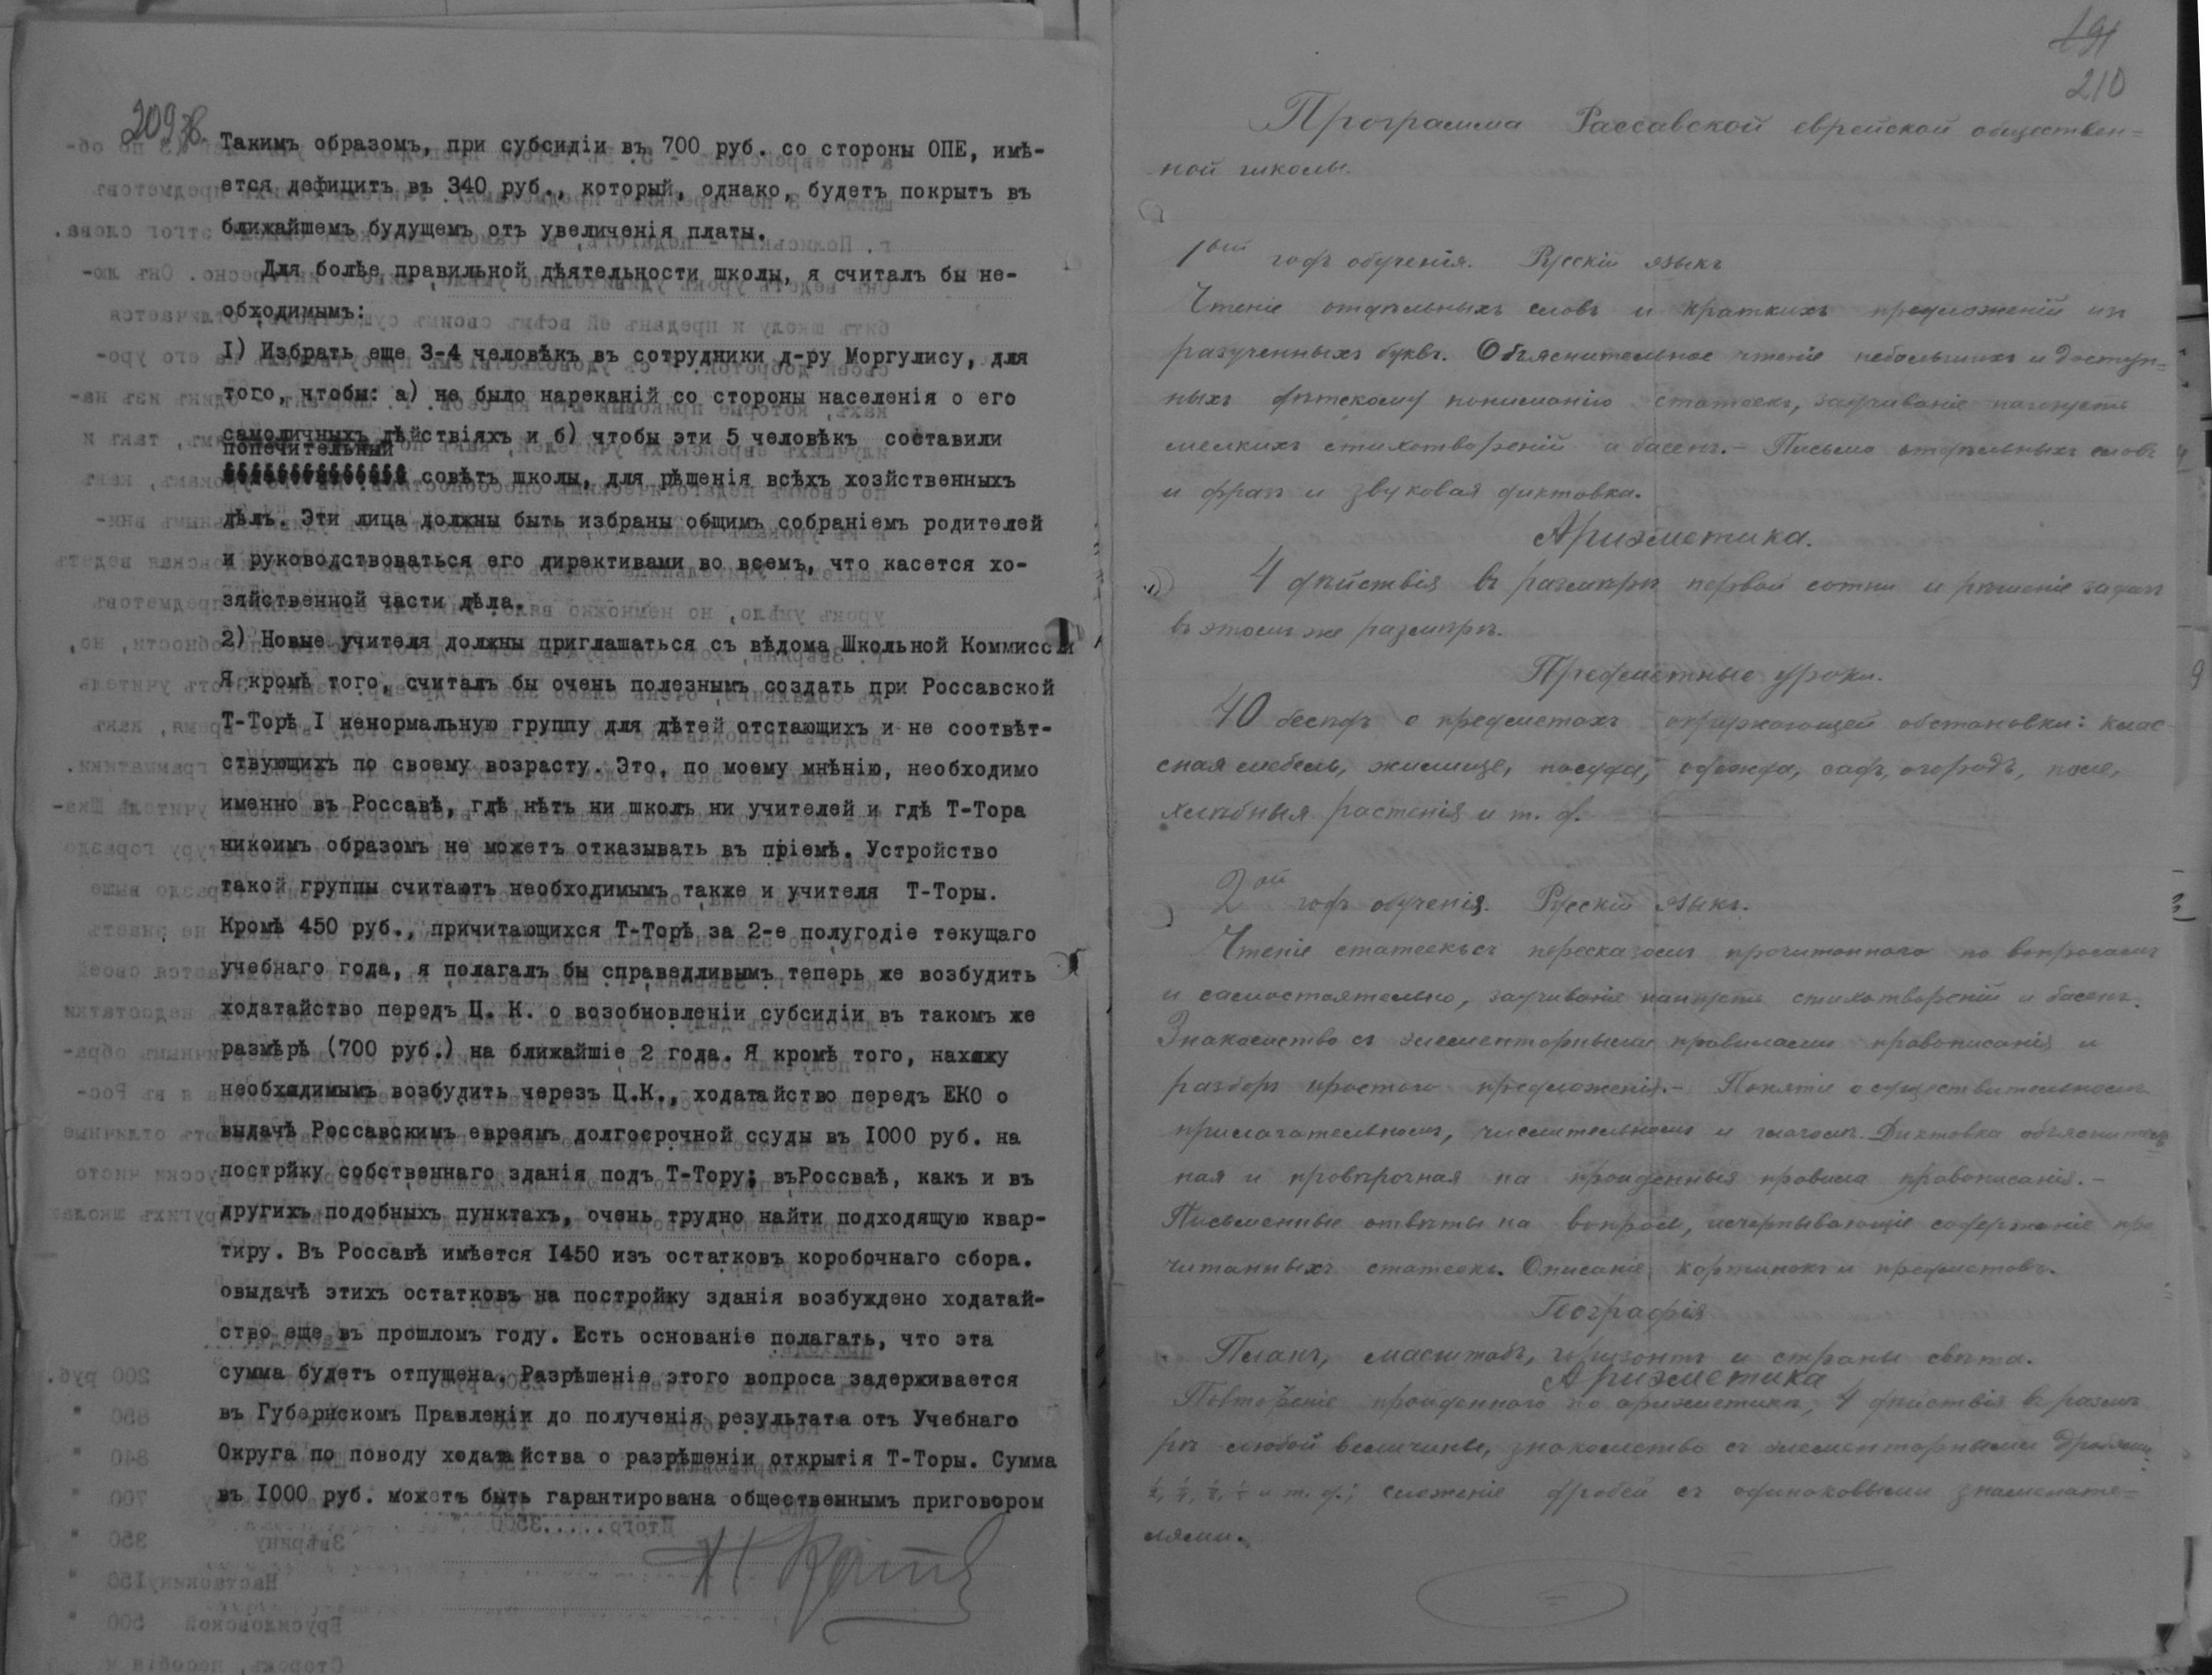 209 об.
Такимъ образомъ, при субсидіи въ 700 руб. со стороны ОПЕ, имѣ-
ется дефицитъ въ 340 руб., который, однако, будетъ покрытъ въ
ближайшемъ будущемъ отъ увеличенія платы.
Для болѣе правильной дѣятельности школы, я считалъ бы не-
обходимымъ:
I) Избрать еще 3-4 человѣкъ въ сотрудники д-ру Моргулису, для
того, чтобы: а) не было нареканій со стороны населенія о его
самоличныхъ дѣйствіяхъ и б) чтобы эти 5 человѣкъ составили
попечительный
совѣтъ школы, для рѣшенія всѣхъ хозйственныхъ
дѣлъ. Эти лица должны быть избраны общимъ собраніемъ родителей
и руководствоваться его директивами во всемъ, что касется хо-
зяйственной части дѣла.
2) Новые учителя должны приглашаться съ вѣдома Школьной Коммиссіи
Я кромѣ того, считалъ бы очень полезнымъ создать при Россавской
Т-Торѣ I ненормальную группу для дѣтей отстающихъ и не соотвѣт-
ствующихъ по своему возрасту. Это, по моему мнѣнію, необходимо
именно въ Россавѣ, гдѣ нѣтъ ни школъ ни учителей и гдѣ Т-Тора
никоимъ образомъ не можетъ отказывать въ пріемѣ. Устройство
такой группы считаютъ необходимымъ также и учителя Т-Торы.
Кромѣ 450 руб., причитающихся Т-Торѣ за 2-е полугодіе текущаго
учебнаго года, я полагалъ бы справедливымъ теперь же возбудить
ходатайство передъ Ц. К. о возобновленіи субсидіи въ такомъ же
размѣрѣ (700 руб.) на ближайшіе 2 года. Я кромѣ того, нахожу
необходимымъ возбудить черезъ Ц.К., ходатайство передъ ЕКО о
выдачѣ Россавскимъ евреямъ долгосрочной ссуды въ I000 руб. на
пострйку собственнаго зданія подъ Т-Тору; въРоссваѣ, какъ и въ
другихъ подобныхъ пунктахъ, очень трудно найти подходящую квар-
тиру. Въ Россавѣ имѣется I450 изъ остатковъ коробочнаго сбора.
овыдачѣ этихъ остатковъ на постройку зданія возбуждено ходатай-
ство еще въ прошломъ году. Есть основаніе полагать, что эта
сумма будетъ отпущена. Разрѣшеніе этого вопроса задерживается
въ Губернскомъ Правленіи до полученія результата отъ Учебнаго
Округа по поводу ходатайства о разрѣшеніи открытія Т-Торы. Сумма
въ I000 руб. можетъ быть гарантирована общественнымъ приговором
191
210
Программа Рассавской еврейской обществен=
ной школы.
1ый годъ обученія. Русскій языкъ
Чтеніе отдѣльныхъ словъ и краткихъ предложеній изъ
разученныхъ буквъ. Объяснительное чтеніе небольшихъ и доступ=
ныхъ дѣтскому пониманію статеекъ, заучиваніе наизусть
мелкихъ стихотвореній и басенъ. - Письмо отдѣльныхъ словъ
и фразъ и звуковая диктовка.
Ариѳметика.
4 дѣйствія въ размѣрѣ первой сотни и рѣшеніе задачъ
въ этомъ же размѣрѣ.
Предметные уроки.
40 бесѣдъ о предметахъ окружающей обстановки: клас
сная мебель, жилище, посуда, одежда, садъ, огородъ, поле,
хлѣбныя растенія и т. д.
2ой годъ обученія. Русскій языкъ.
Чтеніе статеекъ съ пересказомъ прочитаннаго по вопросамъ
и самостоятельно, заучиваніе наизусть стихотвореній и басенъ.
Знакомство съ элементарными правилами правописанія и
разборъ простого предложенія. - Понятіе о существительномъ
прилагательномъ, числительномъ и глаголѣ. Диктовка объяснитель
ная и провѣрочная на пройденныя правила правописанія. -
Письменные отвѣты на вопросы, исчерпывающіе содержаніе про
читанныхъ статеекъ. Описаніе картинокъ и предметовъ.
Географія
Планъ, масштабъ, горизонтъ и страны свѣта.
Ариѳметика
Повтореніе пройденнаго по ариѳметикѣ, 4 дѣйствія въ размѣ
рѣ любой величины, знакомство съ элементарными дробями:
и т. д.; сложеніе дробей съ одинаковыми знаменате=
лями.